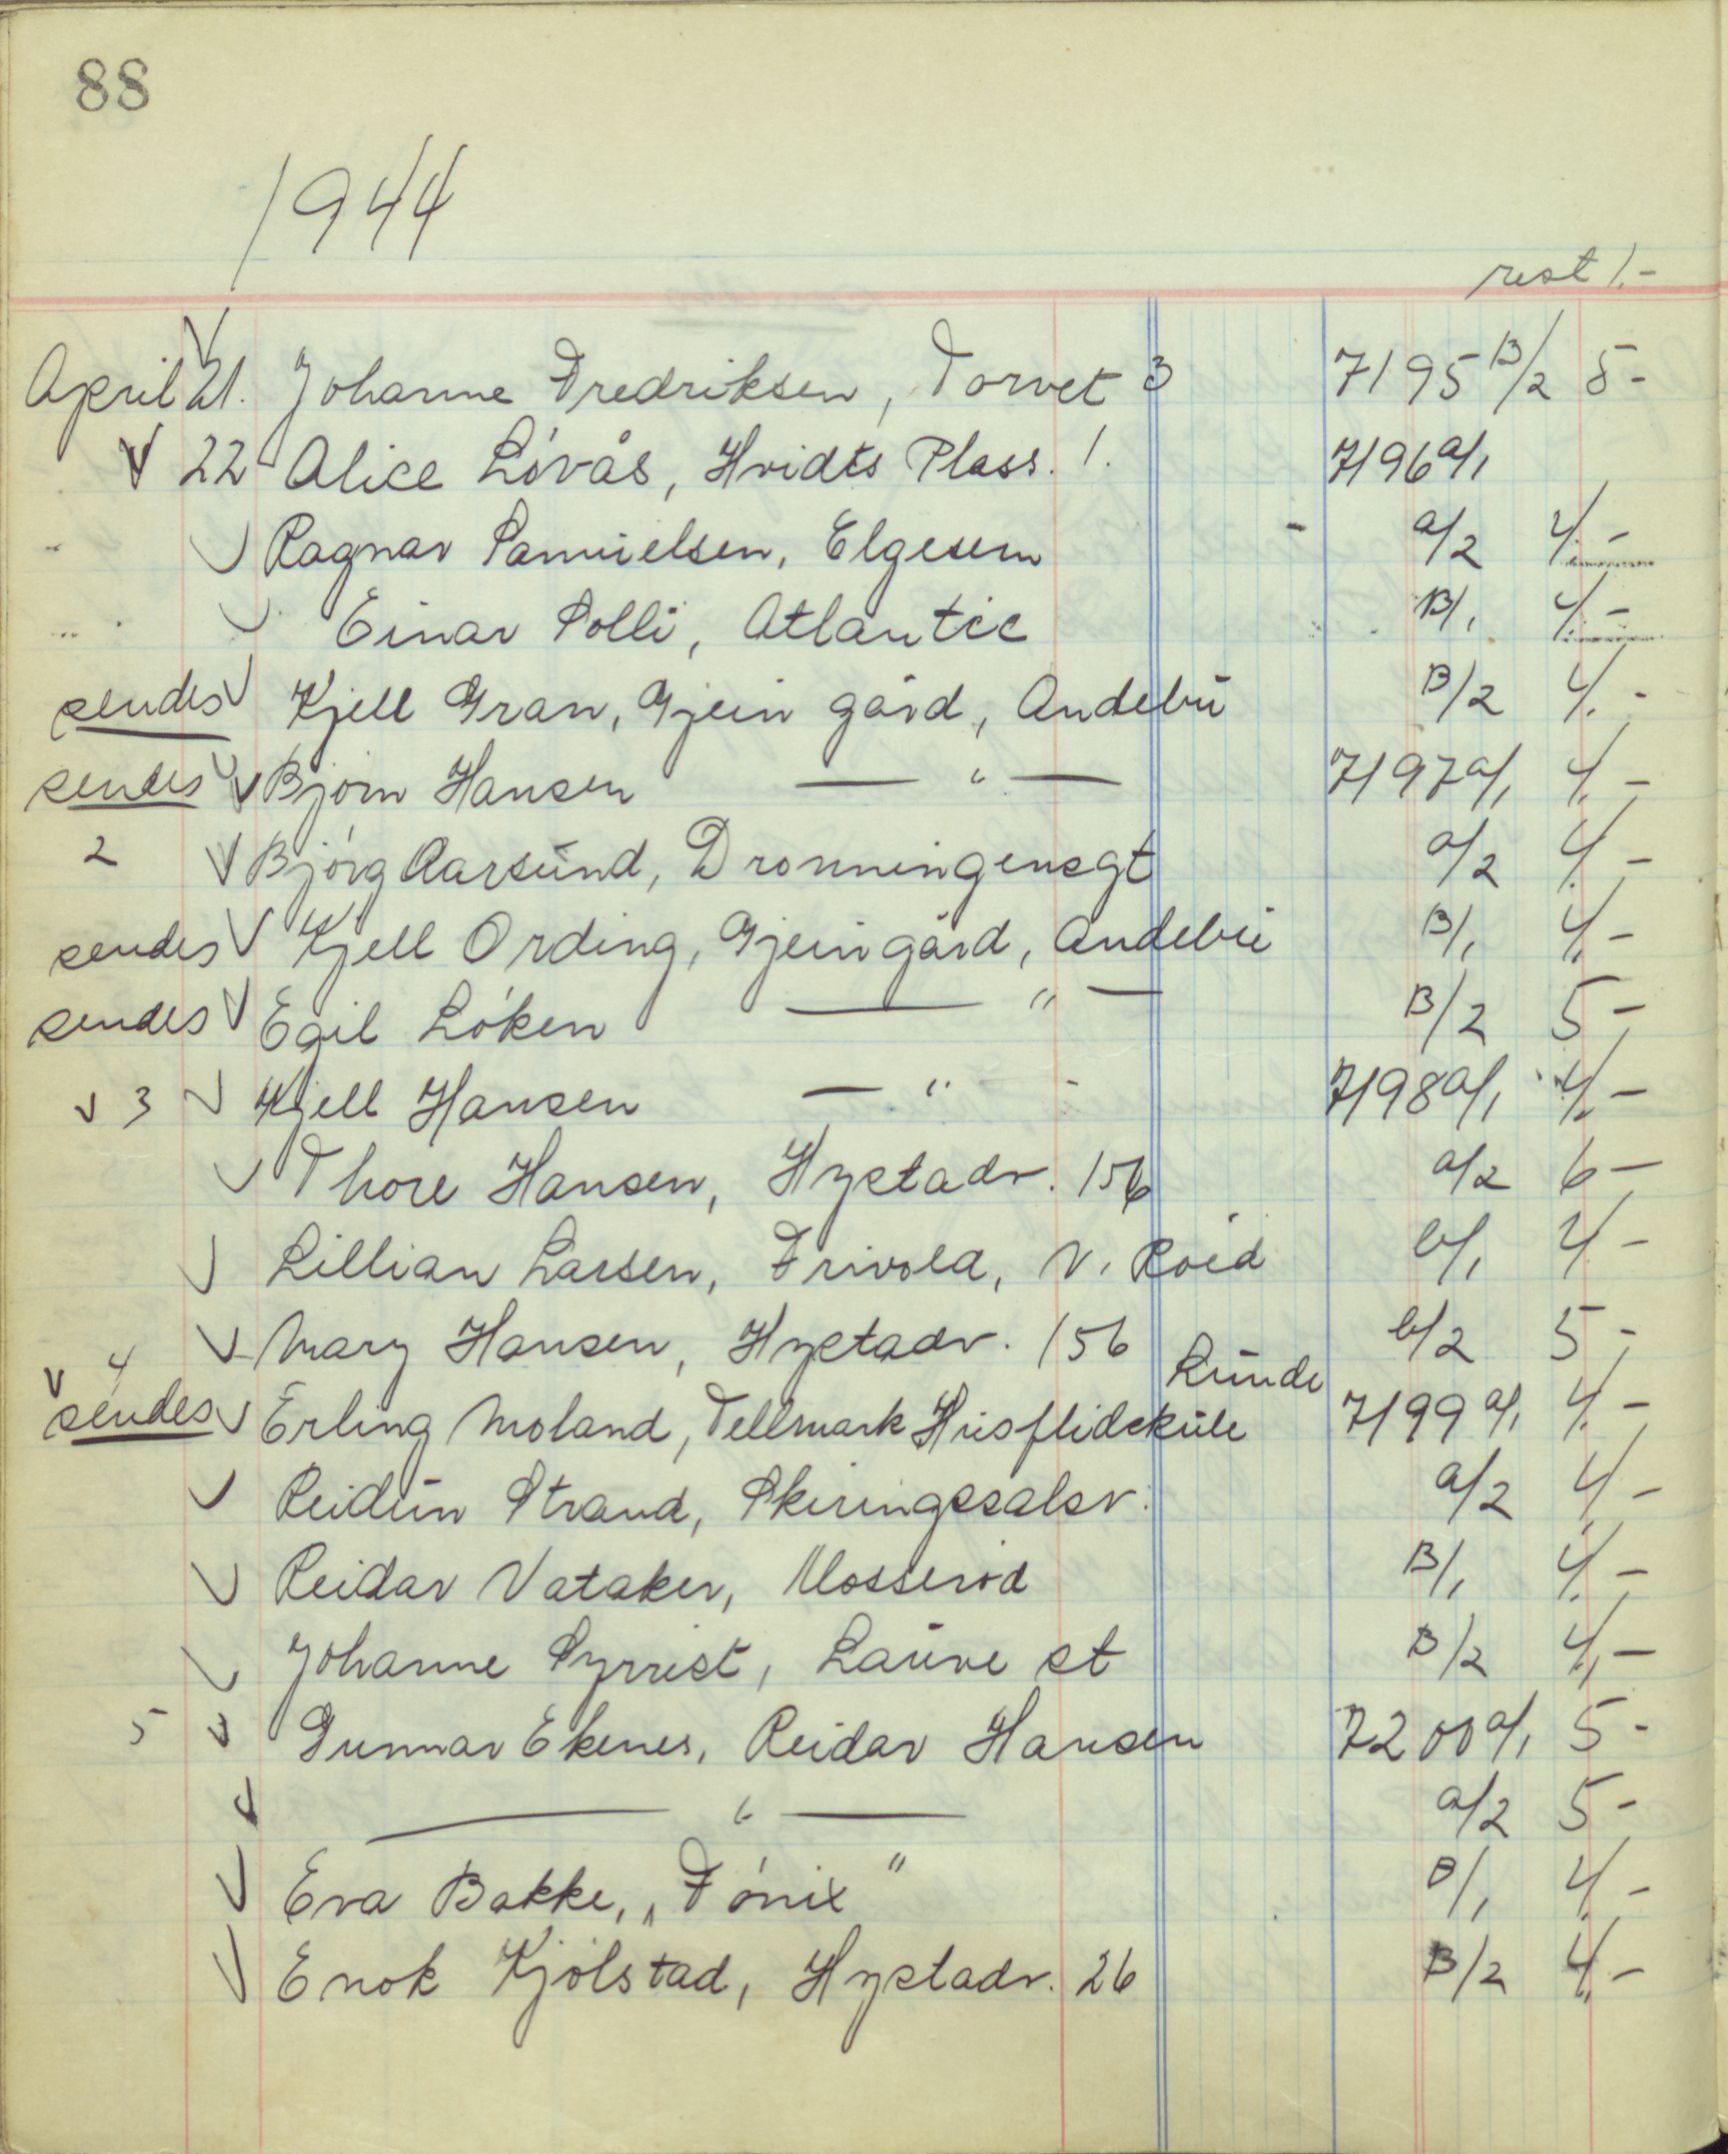 88
1944
rest 1.-
April 21. Johanne Fredriksen, Torvet 3 7195 B/2 5-
22 Alice Lóvås, Hvidts Plass. 1. 7196 a/1
Ragnar Samuelsen, Elgesem - a/2 4.-
Einar Solli, Atlantic B/1 4.-
sendes Kjell Gran, Gjein gård, Andebu B/2 4.-
sendes Bjórn Hansen — " — 7197 a/1 4.-
2 Bjórg Aarsund, Dronningensgt a/2 4.-
sendes Kjell Ording, Gjein gård, Andebu B/1 4.-
sendes Egil Lóken — " — B/2 5-
3 Kjell Hansen — " - 7198 a/1 4.-
Thore Hansen, Hystadv. 156 a/2 6-
Lillian Larsen, Frivold, V. Róed b/1 4-
Mary Hansen, Hystadv. 156 b/2 5-
4
sendes Erling Moland, Tellmark Husflidskule Lunde 7199 a/1 4.-
Reidun Strand, Skiringssalsv. a/2 4-
Reidar Vataker, Mosseród B/1 4.-
Johanne Syrrist, Lauve st B/2 4,-
5 Gunnar Ekenes, Reidar Hansen 7200 a/1 5-
— " — a/2 5-
Eva Bakke, „Fónix" B/1 4.-
Enok Kjólstad, Hystadv. 26 B/2 4.-